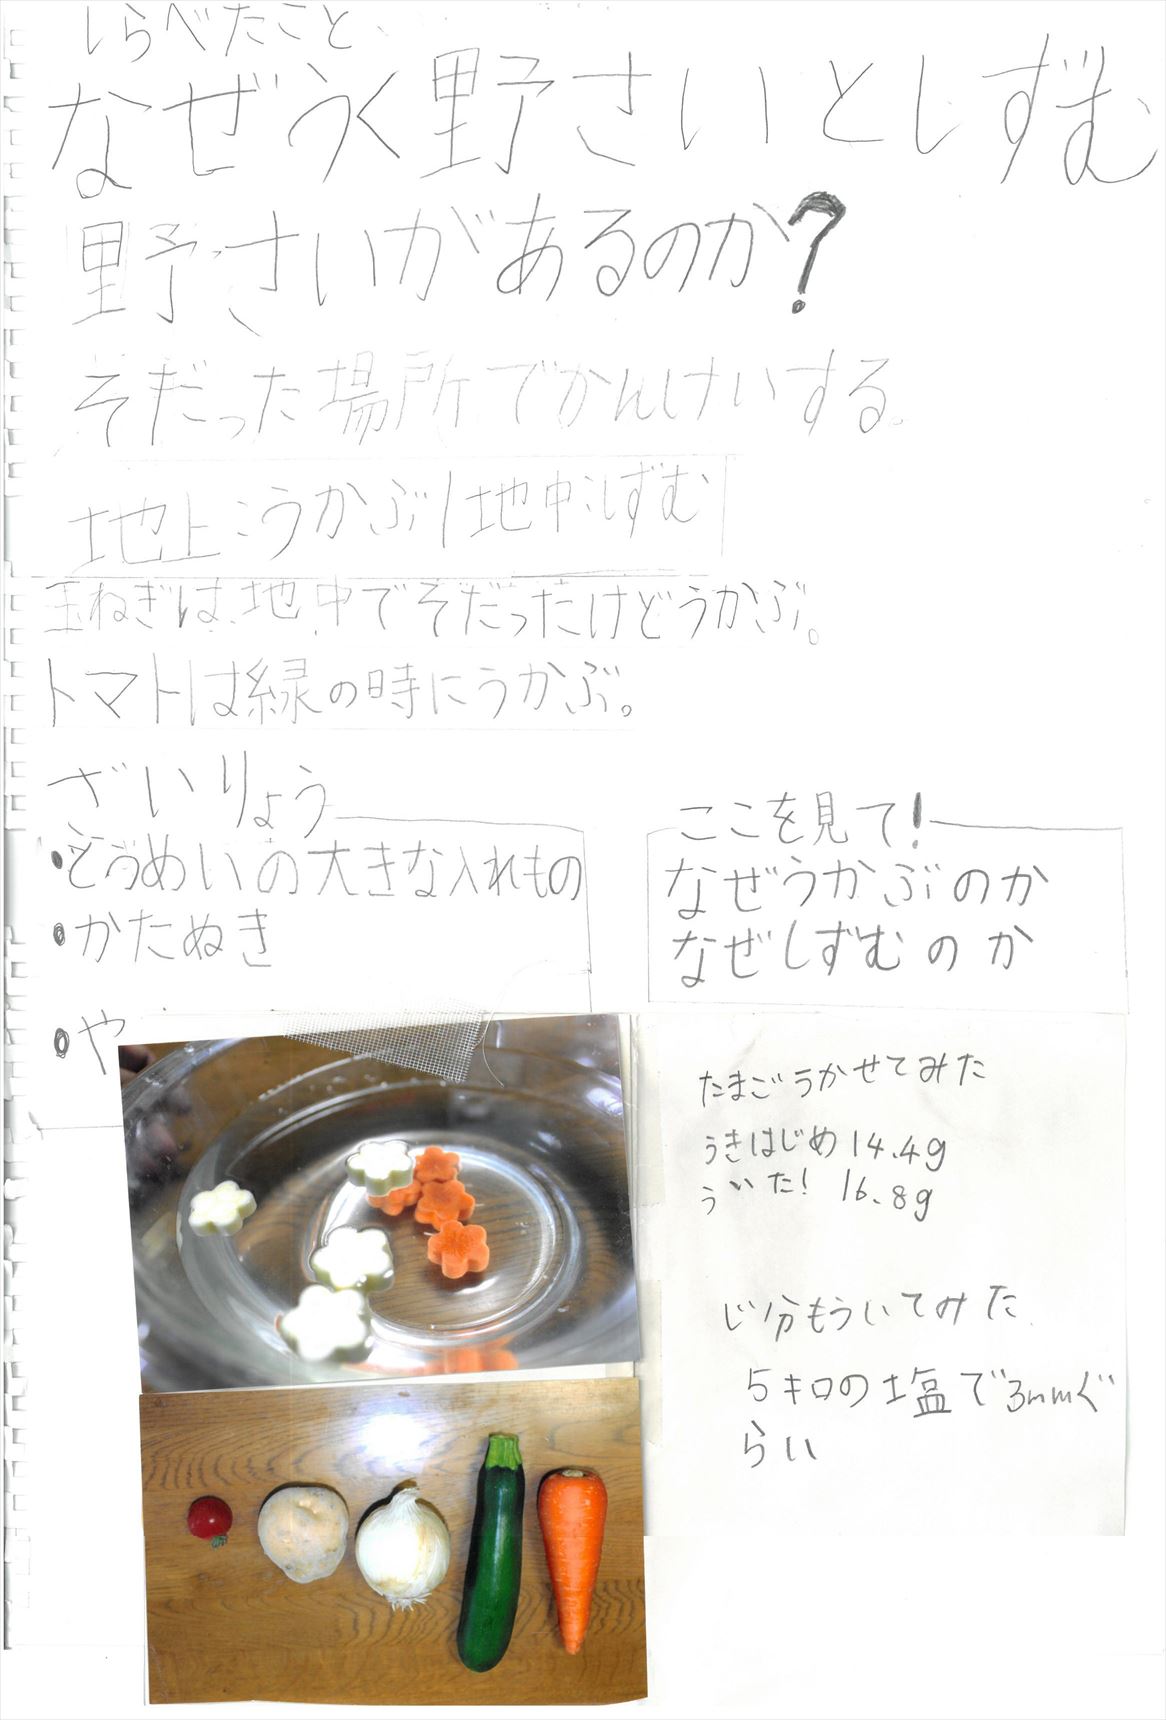 しらべたこと、
なぜうく野さいとしずむ
野さいがあるのか?
そだった場所でかんけいする。
地上:うかぶ/地中:しずむ
玉ねぎは地中でそだったけどうかぶ。
トマトは緑の時にうかぶ。
ざいりょう
•とうめいの大きな入れもの
•かたぬき
•や
ここを見て!
なぜうかぶのか
なぜしずむのか
たまごうかせてみた
うきはじめ14.4g
ういた! 16.8g
じ分もういてみた
5キロの塩で3mmぐ
らい